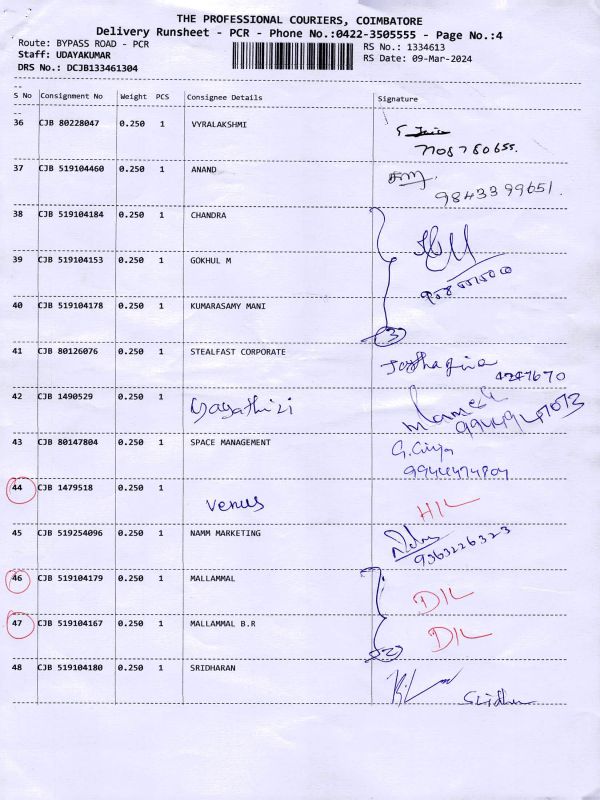 THE PROFESSIONAL COURIERS, COIMBATORE
Delivery Runsheet - PCR - Phone No.:0422-3505555 - Page No.:4
Route: BYPASS ROAD - PCR RS No.: 1334613
Staff: UDAYAKUMAR RS Date: 09-Mar-2024
DRS No.: DCJB133461304
S No Consignment No Weight PCS Consignee Details Signature
36 CJB 80228047 0.250 1 VYRALAKSHMI
7708780655.
37 CJB 519104460 0.250 1 ANAND
9843399651.
38 CJB 519104184 0.250 1 CHANDRA
39 CJB 519104153 0.250 1 GOKHUL M
40 CJB 519104178 0.250 1 KUMARASAMY MANI
3
41 CJB 80126076 0.250 1 STEALFAST CORPORATE
4247670
42 CJB 1490529 0.250 1
43 CJB 80147804 0.250 1 SPACE MANAGEMENT
9944474804
44 CJB 1479518 0.250 1 venus H/L
45 CJB 519254096 0.250 1 NAMM MARKETING
9363226323
46 CJB 519104179 0.250 1 MALLAMMAL D/L
47 CJB 519104167 0.250 1 MALLAMMAL B.R D/L
2
48 CJB 519104180 0.250 1 SRIDHARAN Sridhar